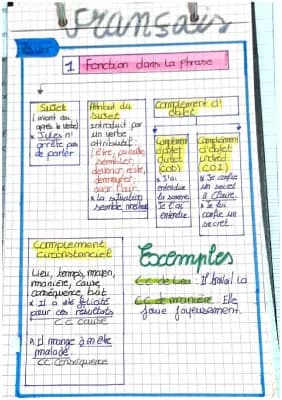 Français
1 Fonction dans la phrase
Sujet
(avant ou
après le verbe)
Jules n'
arrête pas
de parler
Attribut du
sujet
introduit par
un verbe
attributif:
(être, paraître,
sembler,
devenir, rester,
demeurer,
avoir l'air
La situation
semble
Complément d'
objet
Complément
d'objet
direct
(COD)
J'ai
entendu
la sonnerie
Je l'ai
entendue
Complément
d'objet
indirect
(COI)
Je confie
un secret
à Claire.
Je lui
confie un
secret
Complément
circonstanciel
Lieu, temps, moyen,
manière, cause,
conséquence, but
Il a été félicité
pour ces résultats
CC cause
Il mange à m'être
malade.
CC conséquence
Excemples
CC de Lieu: Il travail la
CC de manière: Elle
joue joyeusement.